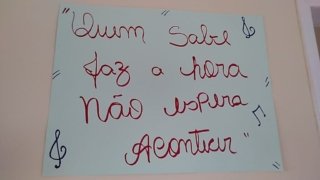 "Quem Sabe
faz a hora
Não espera
Acontecer"